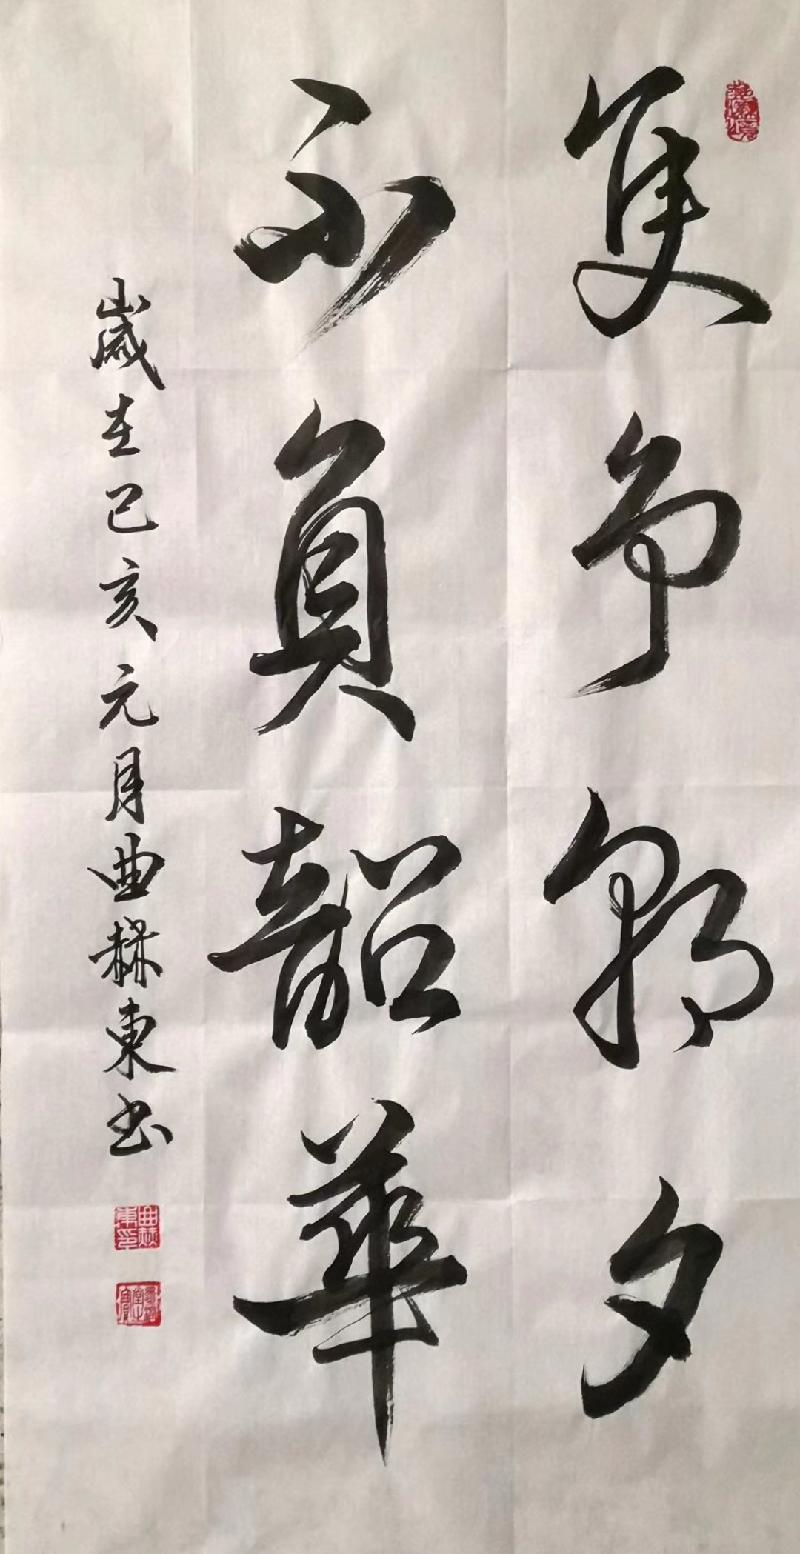 隻争朝夕
不負韶華
歲在己亥元月曲赫東书